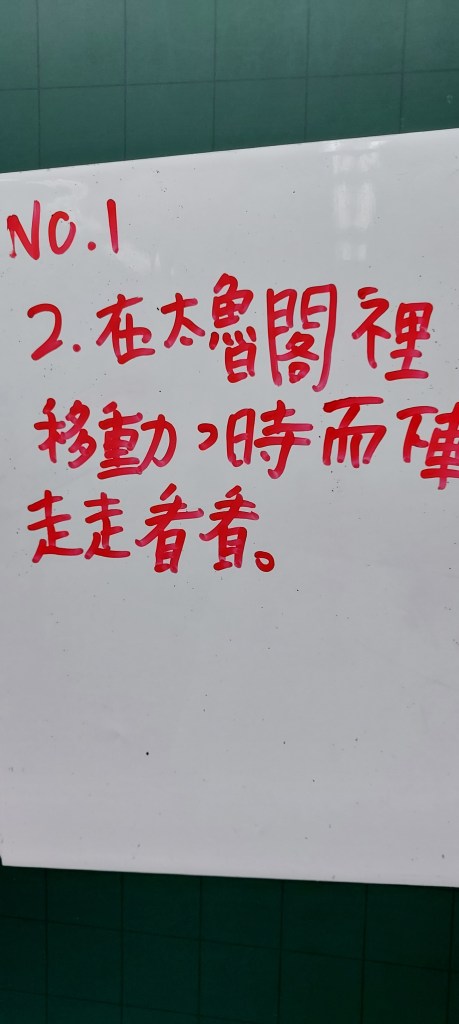 NO.1
2.在太魯閣裡
移動,時而下車
走走看看。